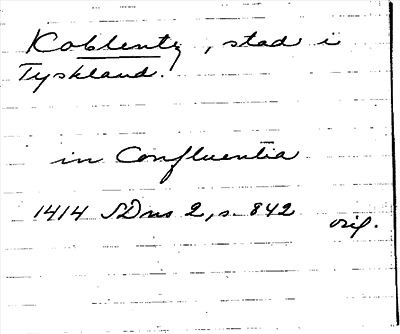 Koblentz, stad i
Tyskland.
in Confluentia
1414 SDns 2, s. 842 orig.